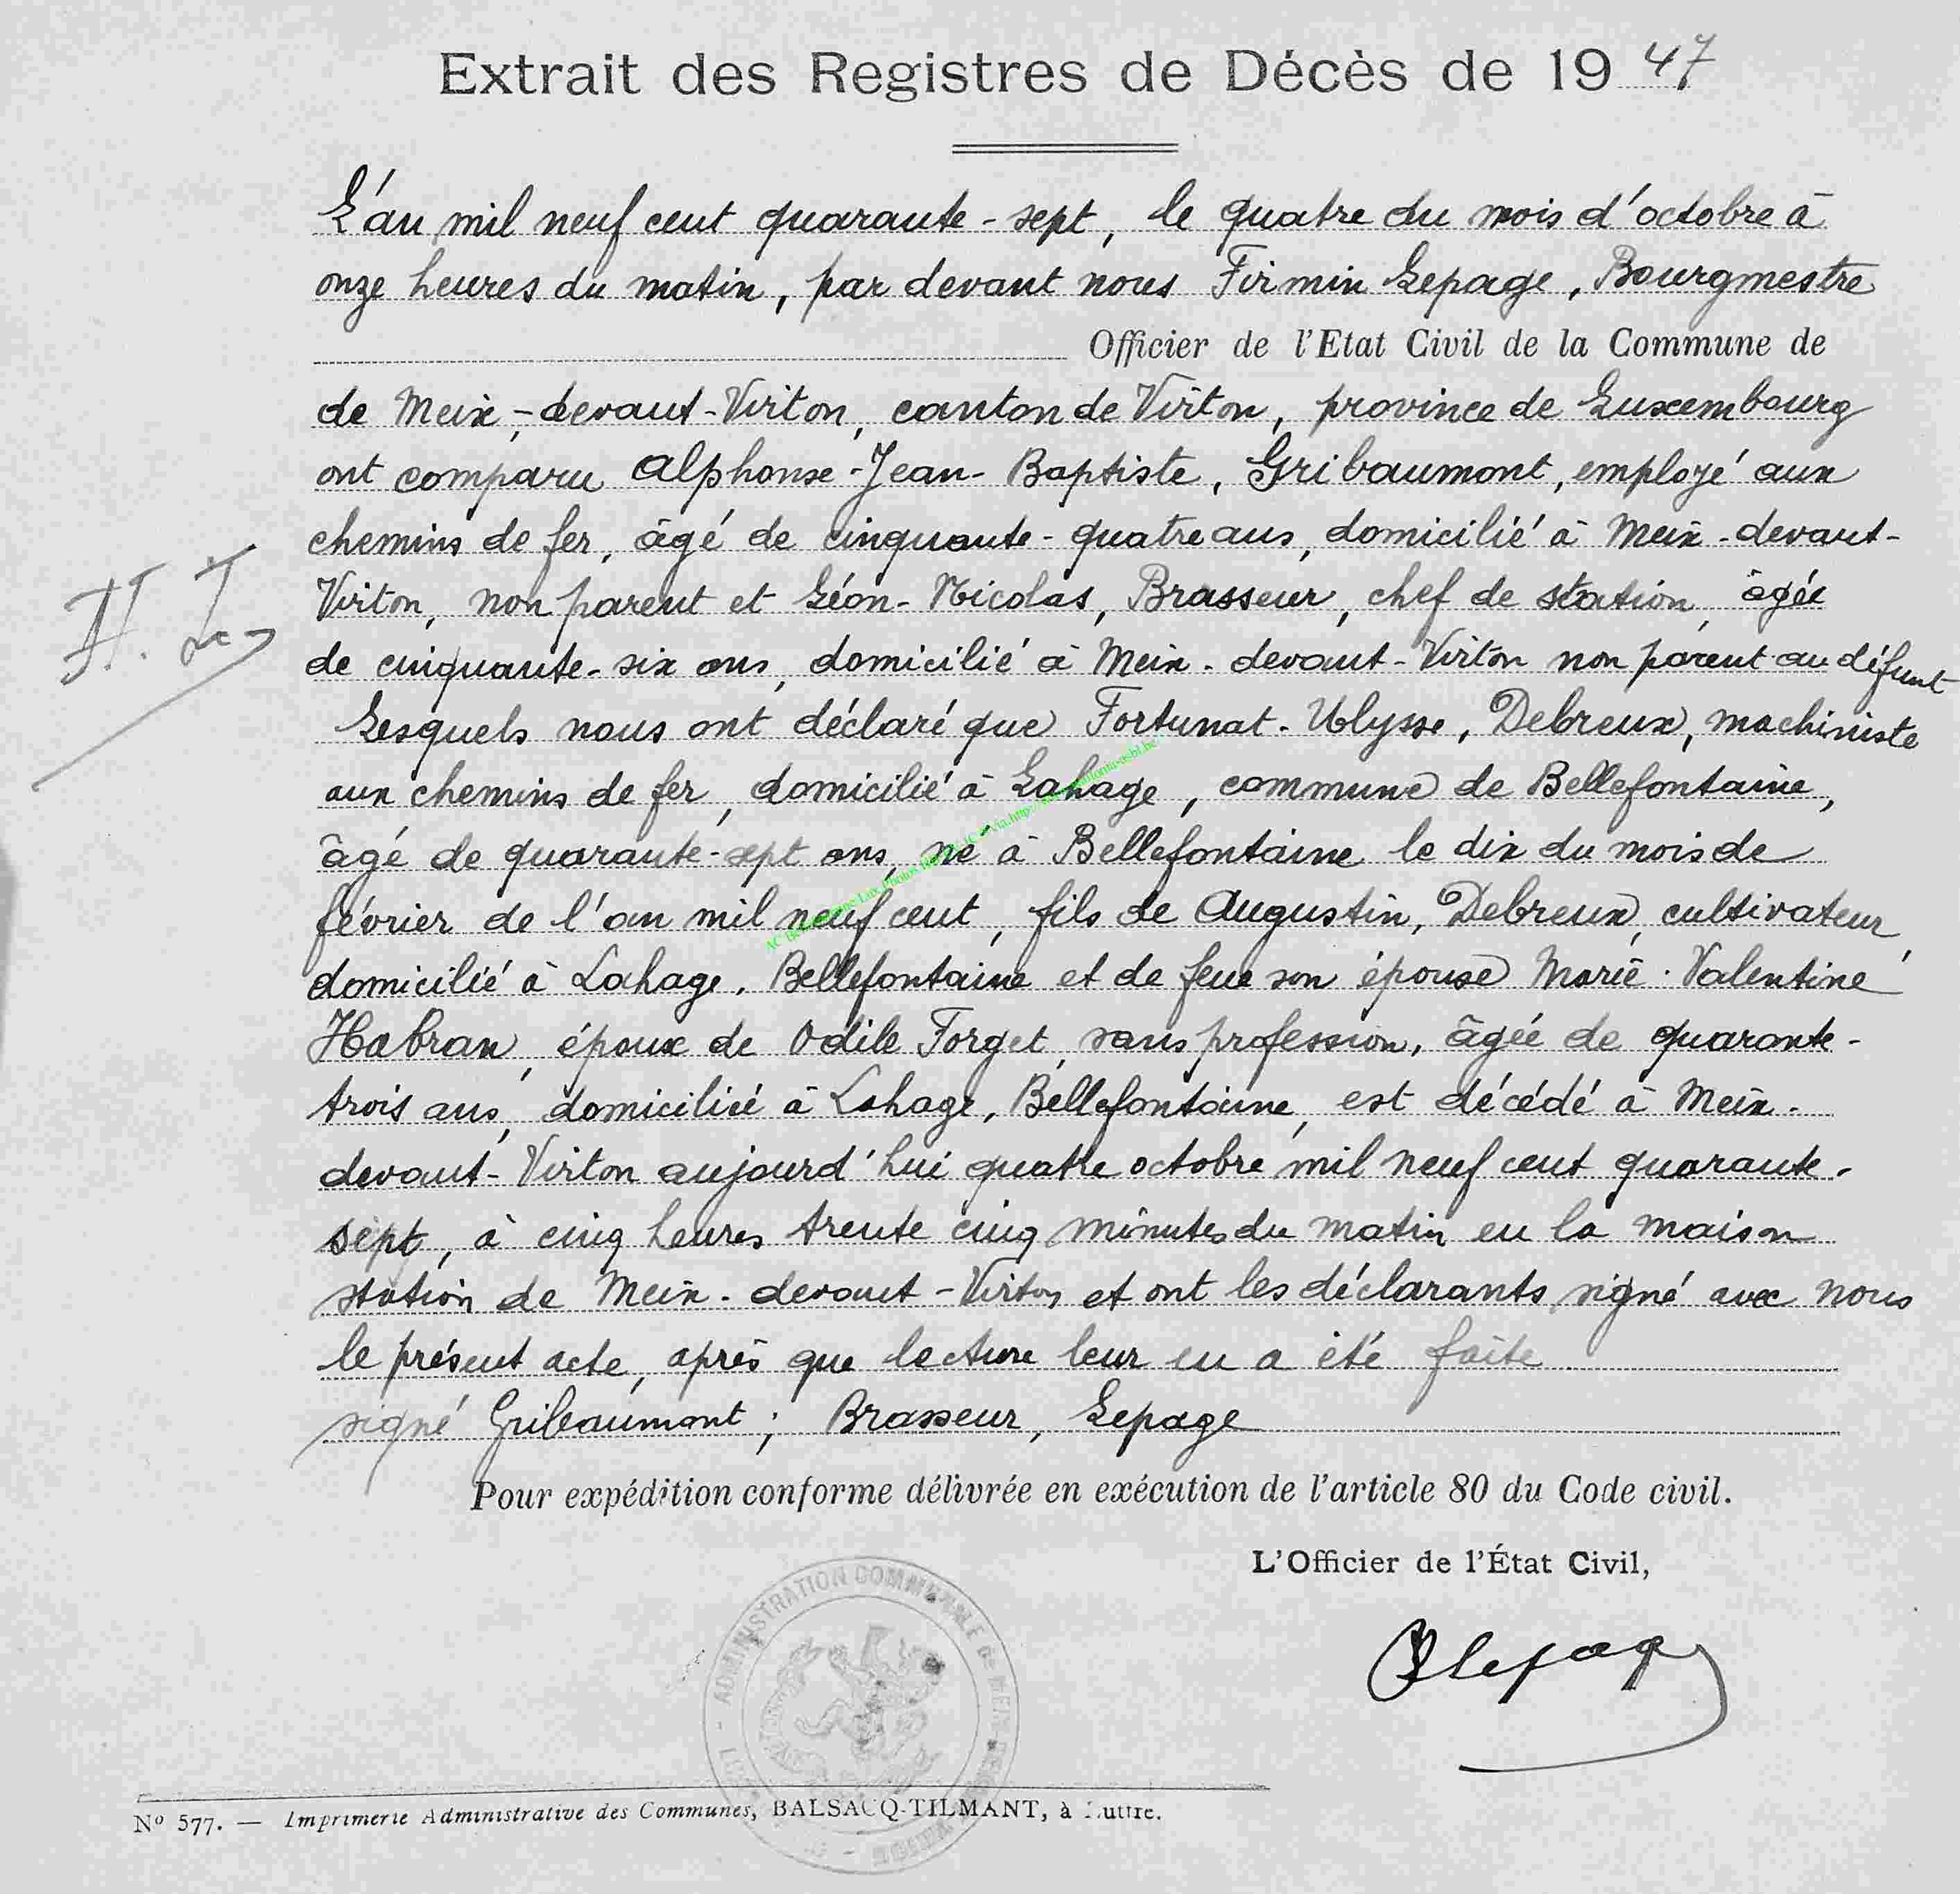 Extrait des Registres de Décès de 1947
L'an mil neuf cent quarante-sept, le quatre du mois d'octobre à
onze heures du matin, par devant nous Firmin Lepage, Bourgmestre
Officier de l'Etat Civil de la Commune de
de Meix-devant-Virton, canton de Virton, province de Luxembourg
ont comparu Alphonse-Jean-Baptiste, Gribaumont, employé aux
chemins de fer, âgé de cinquante-quatre ans, domicilié à Meix-devant-
Virton, non parent et Léon-Nicolas, Brasseur, chef de station, âgée
de cinquante-six ans, domicilié à Meix-devant-Virton non parent au défunt
Lesquels nous ont déclaré que Fortunat-Ulysse, Debreux, machiniste
aux chemins de fer, domicilié à Lahage, commune de Bellefontaine,
âgé de quarante-sept ans, né à Bellefontaine le dix du mois de
février de l'an mil neuf cent, fils de Augustin, Debreux, cultivateur,
domicilié à Lahage, Bellefontaine et de feue son épouse Marie-Valentine
Habran, époux de Odile Forget, sans profession, âgée de quarante-
trois ans, domiciliée à Lahage, Bellefontaine, est décédé à Meix-
devant-Virton aujourd'hui quatre octobre mil neuf cent quarante-
sept, à cinq heures trente cinq minutes du matin en la maison
station de Meix-devant-Virton et ont les déclarants signé avec nous
le présent acte, après que lecture leur en a été faite
signé Gribaumont; Brasseur, Lepage
Pour expédition conforme délivrée en exécution de l'article 80 du Code civil.
L'Officier de l'État Civil,
Lepage
ADMINISTRATION COMMUNALE DE MEIX-DEVANT-VIRTON
Nº 577. — Imprimerie Administrative des Communes, BALSACQ-TILMANT, à Luttre.